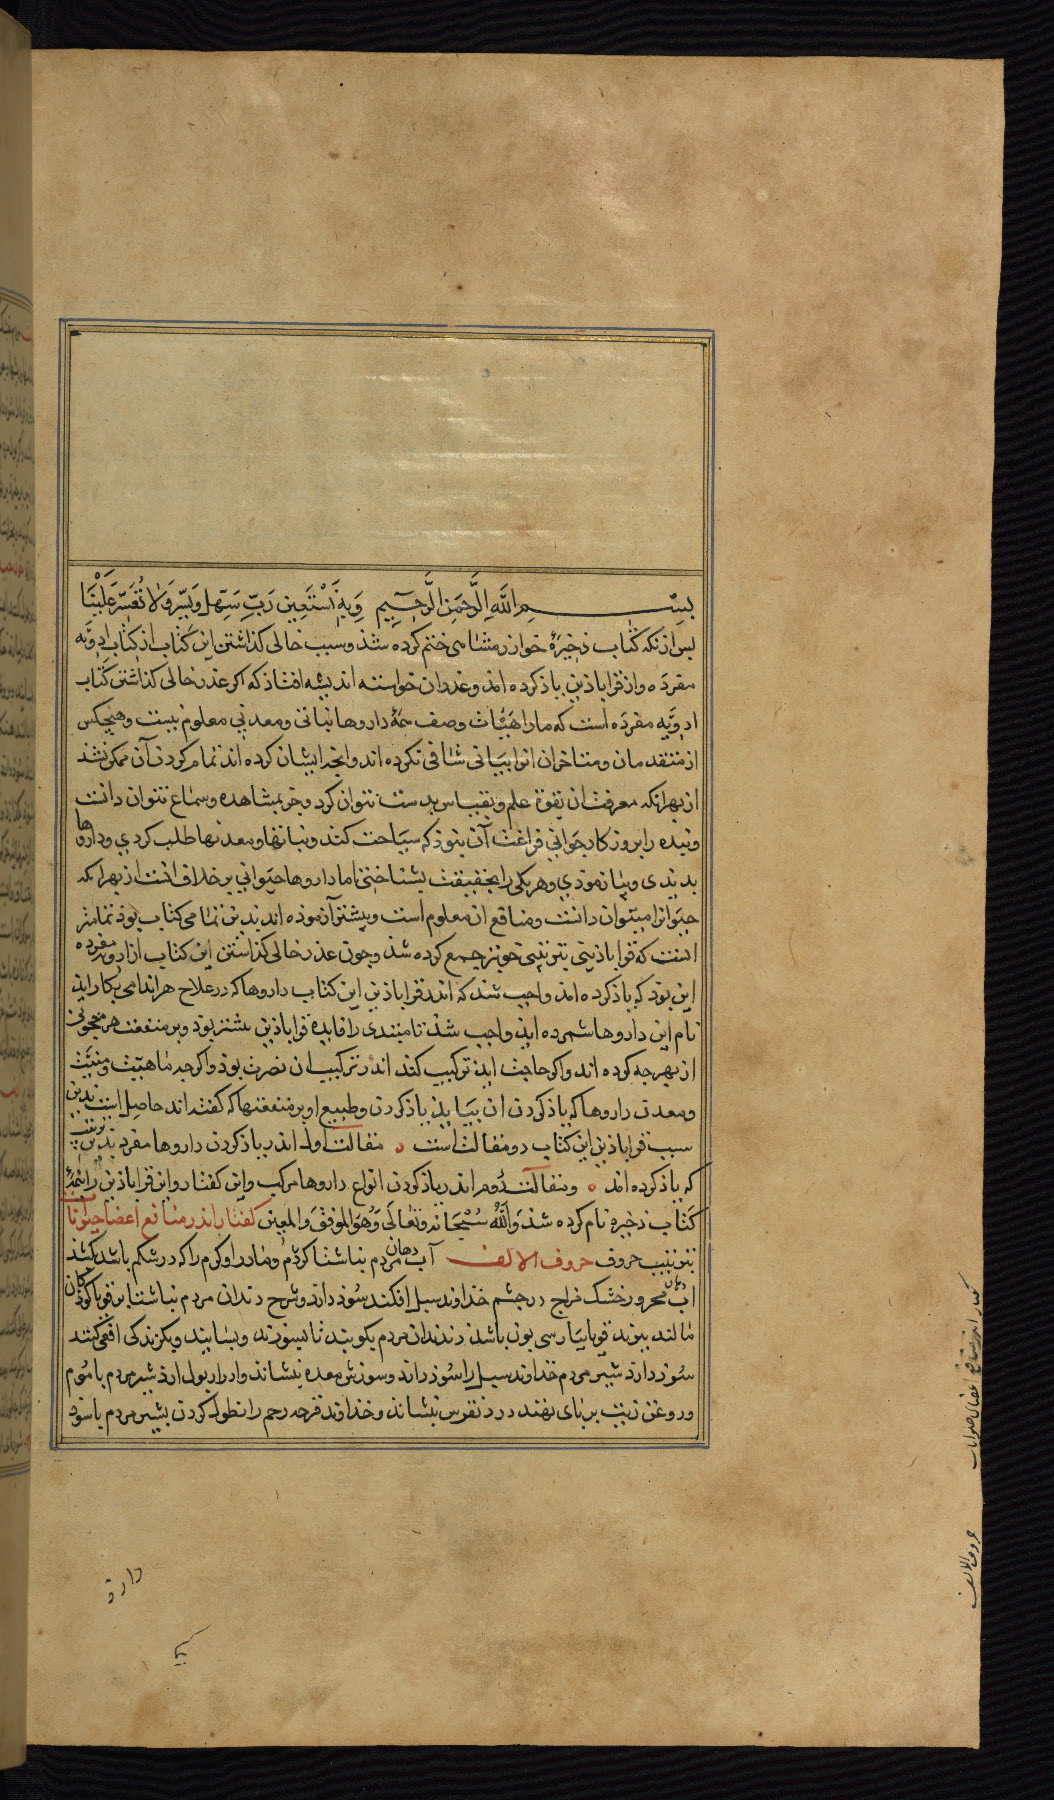 بسم الله الرحمن الرحیم وبه نستعین رب سهل ویسر ولا تعسر علینا
پس ازنکه کتاب ذخیرهٔ خوارزمشاهی ختم کرده شذ وسبب خالی کذاشتن این کتاب از کتاب ادویه
مفرده واز قراباذین یاذ کرده امذ وعذر ان خواسته اندیشه افتاذ که اکر عذر خالی کذاشتن کتاب
ادویه مفرده است که ما را هیئات وصف همهٔ داروها نباتی ومعدنی معلوم نیست وهیچکس
از متقدمان ومتاخران انرا بیانی شافی نکرده اند وانچه ایشان کرده اند تمام کردن آن ممکن نشذ
از بهر انکه معرفت ان بقوة علم وبقیاس بدست نتوان کرد وجز بمشاهده وسماع نتوان دانست
وبنده را بروزکار جوانی فراغت آن نبوذ که سیاحت کند ونباتها ومعدنها طلب کردی وداروها
بدیدی وبیازموذی وهر یکی را بحقیقت بشناختی اما داروها حیوانی بر خلاف انست از بهر انکه
حیوانرا میتوان دانست ومنافع ان معلوم است وبیشتر آزموذه اند بدین تمامی کتاب بوذ
انست که قراباذینی بترتیبی خوبتر جمع کرده شذ وچون عذر خالی کذاشتن این کتاب از ادویه مفرده
این بوذ که یاذ کرده امذ واجب شذ که اندر قراباذین این کتاب داروها که در علاج هر اندامی بکار اید
نام این داروها شمرده اید واجب شذ تا مبتدی را فایده قراباذین بیشتر بوذ وبر منفعت هر معجونی
از بهر چه کرده اند واکر حاجت اید ترکیب کند اندر ترکیب ان نصرت بوذ واکرچه ماهیت ومنبت
ومعدن داروها که یاذ کردن ان بباید یاذ کردن وطبیع او وبر منفعتها که کفته اند حاصل است بدین
سبب قراباذین این کتاب دو مقالت است مقالت اول اندر یاذ کردن داروها مفرد بدین ترتیب
که یاذ کرده امذ ومقالت دوم اندر یاذ کردن انواع داروها مرکب واین کفتار واین قراباذین را تتمهٔ
کتاب ذخیره نام کرده شذ والله سبحانه وتعالی وهو الموفق والمعین کفتار اندر منافع اعضا حیوانات
بترتیب حروف حروف الالف آب دهان مردم ناشتا کژدم ومار را وکرم را که در شکم باشد بکشد
اب دهان محرور خشک مزاج در چشم خداوند سبل افکند سوذ دارد وشرح دندان مردم ناشتا برقوبا کوذکان
مالند ببرد قوبا بپارسی بون باشذ دندان مردم بکوبند تا بسوزند وبسایند وبکزندکی افعی کنند
سوذ دارد شیر مردم خداوند سیل را سوذ دارد وسوزش معده بنشاند وادرار بول ارد شیر مردم با موم
وروغن زیت بر پای نهند درد نقرس بنشاند وخداوند قرحه رحم را نطول کردن بشیر مردم با سوذ
کفتار اندر منافع اعضای حیوانات
حروف الالف